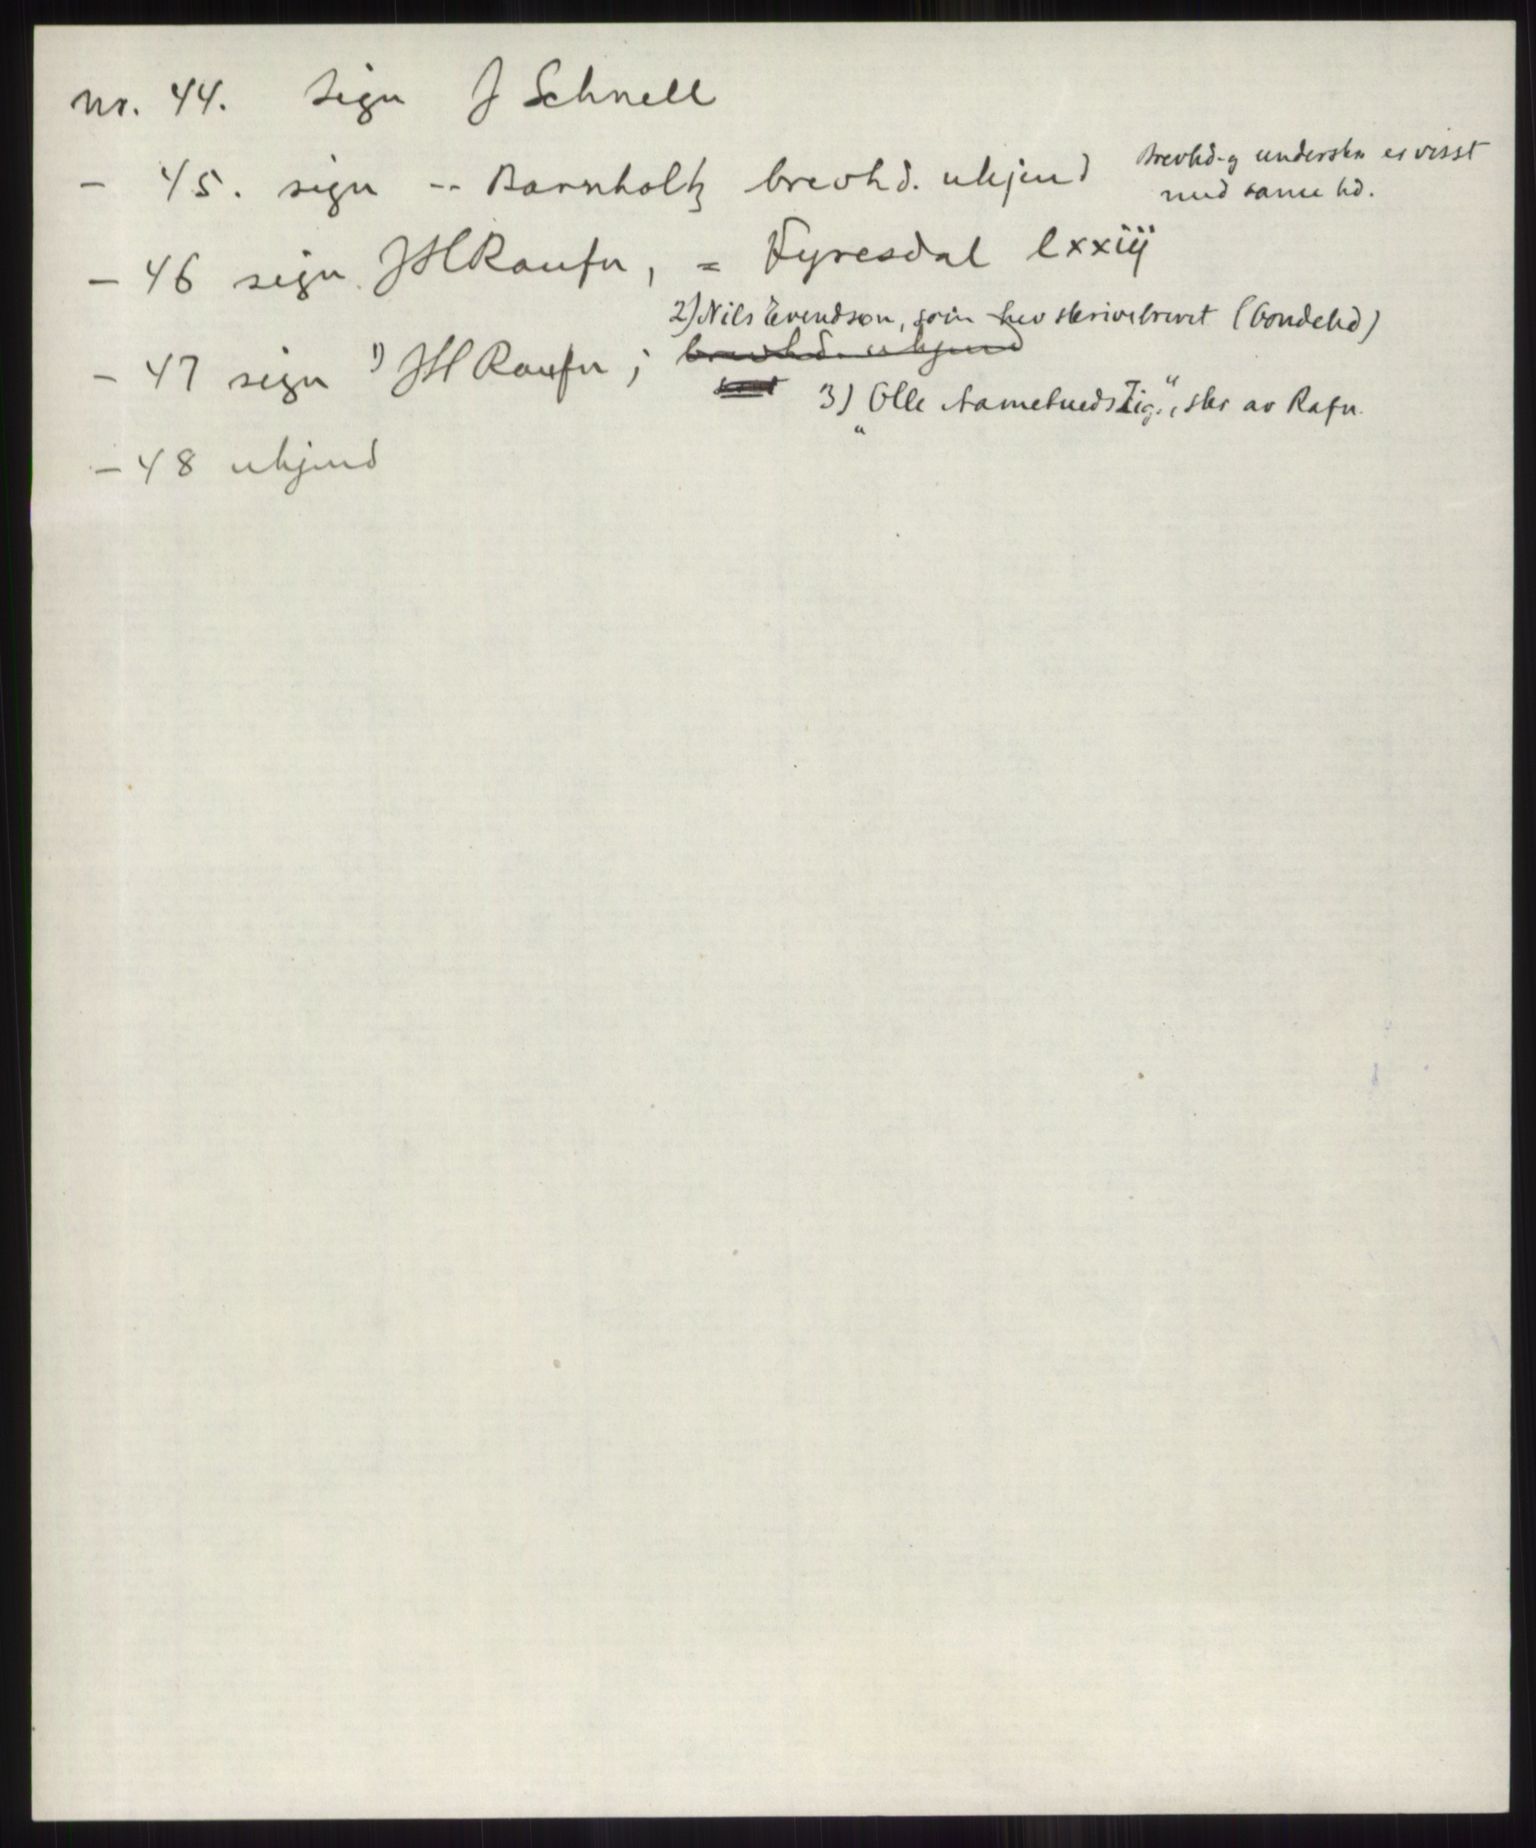 nr. 44. sign J Schnell
- 45. sign -- Barnholtz brevhd. ukjend
Brevhd. og underskr er visst
med same hd.
- 46 sign. JH Raufn, = Fyresdal lxxiij
2) Nils Evendson, som hev skrive brevet (bondehd)
- 47 sign 1) JH Raufn; brevhd. ukjend
3) "Olle Zig.", skr av Rafn.
- 48 ukjend